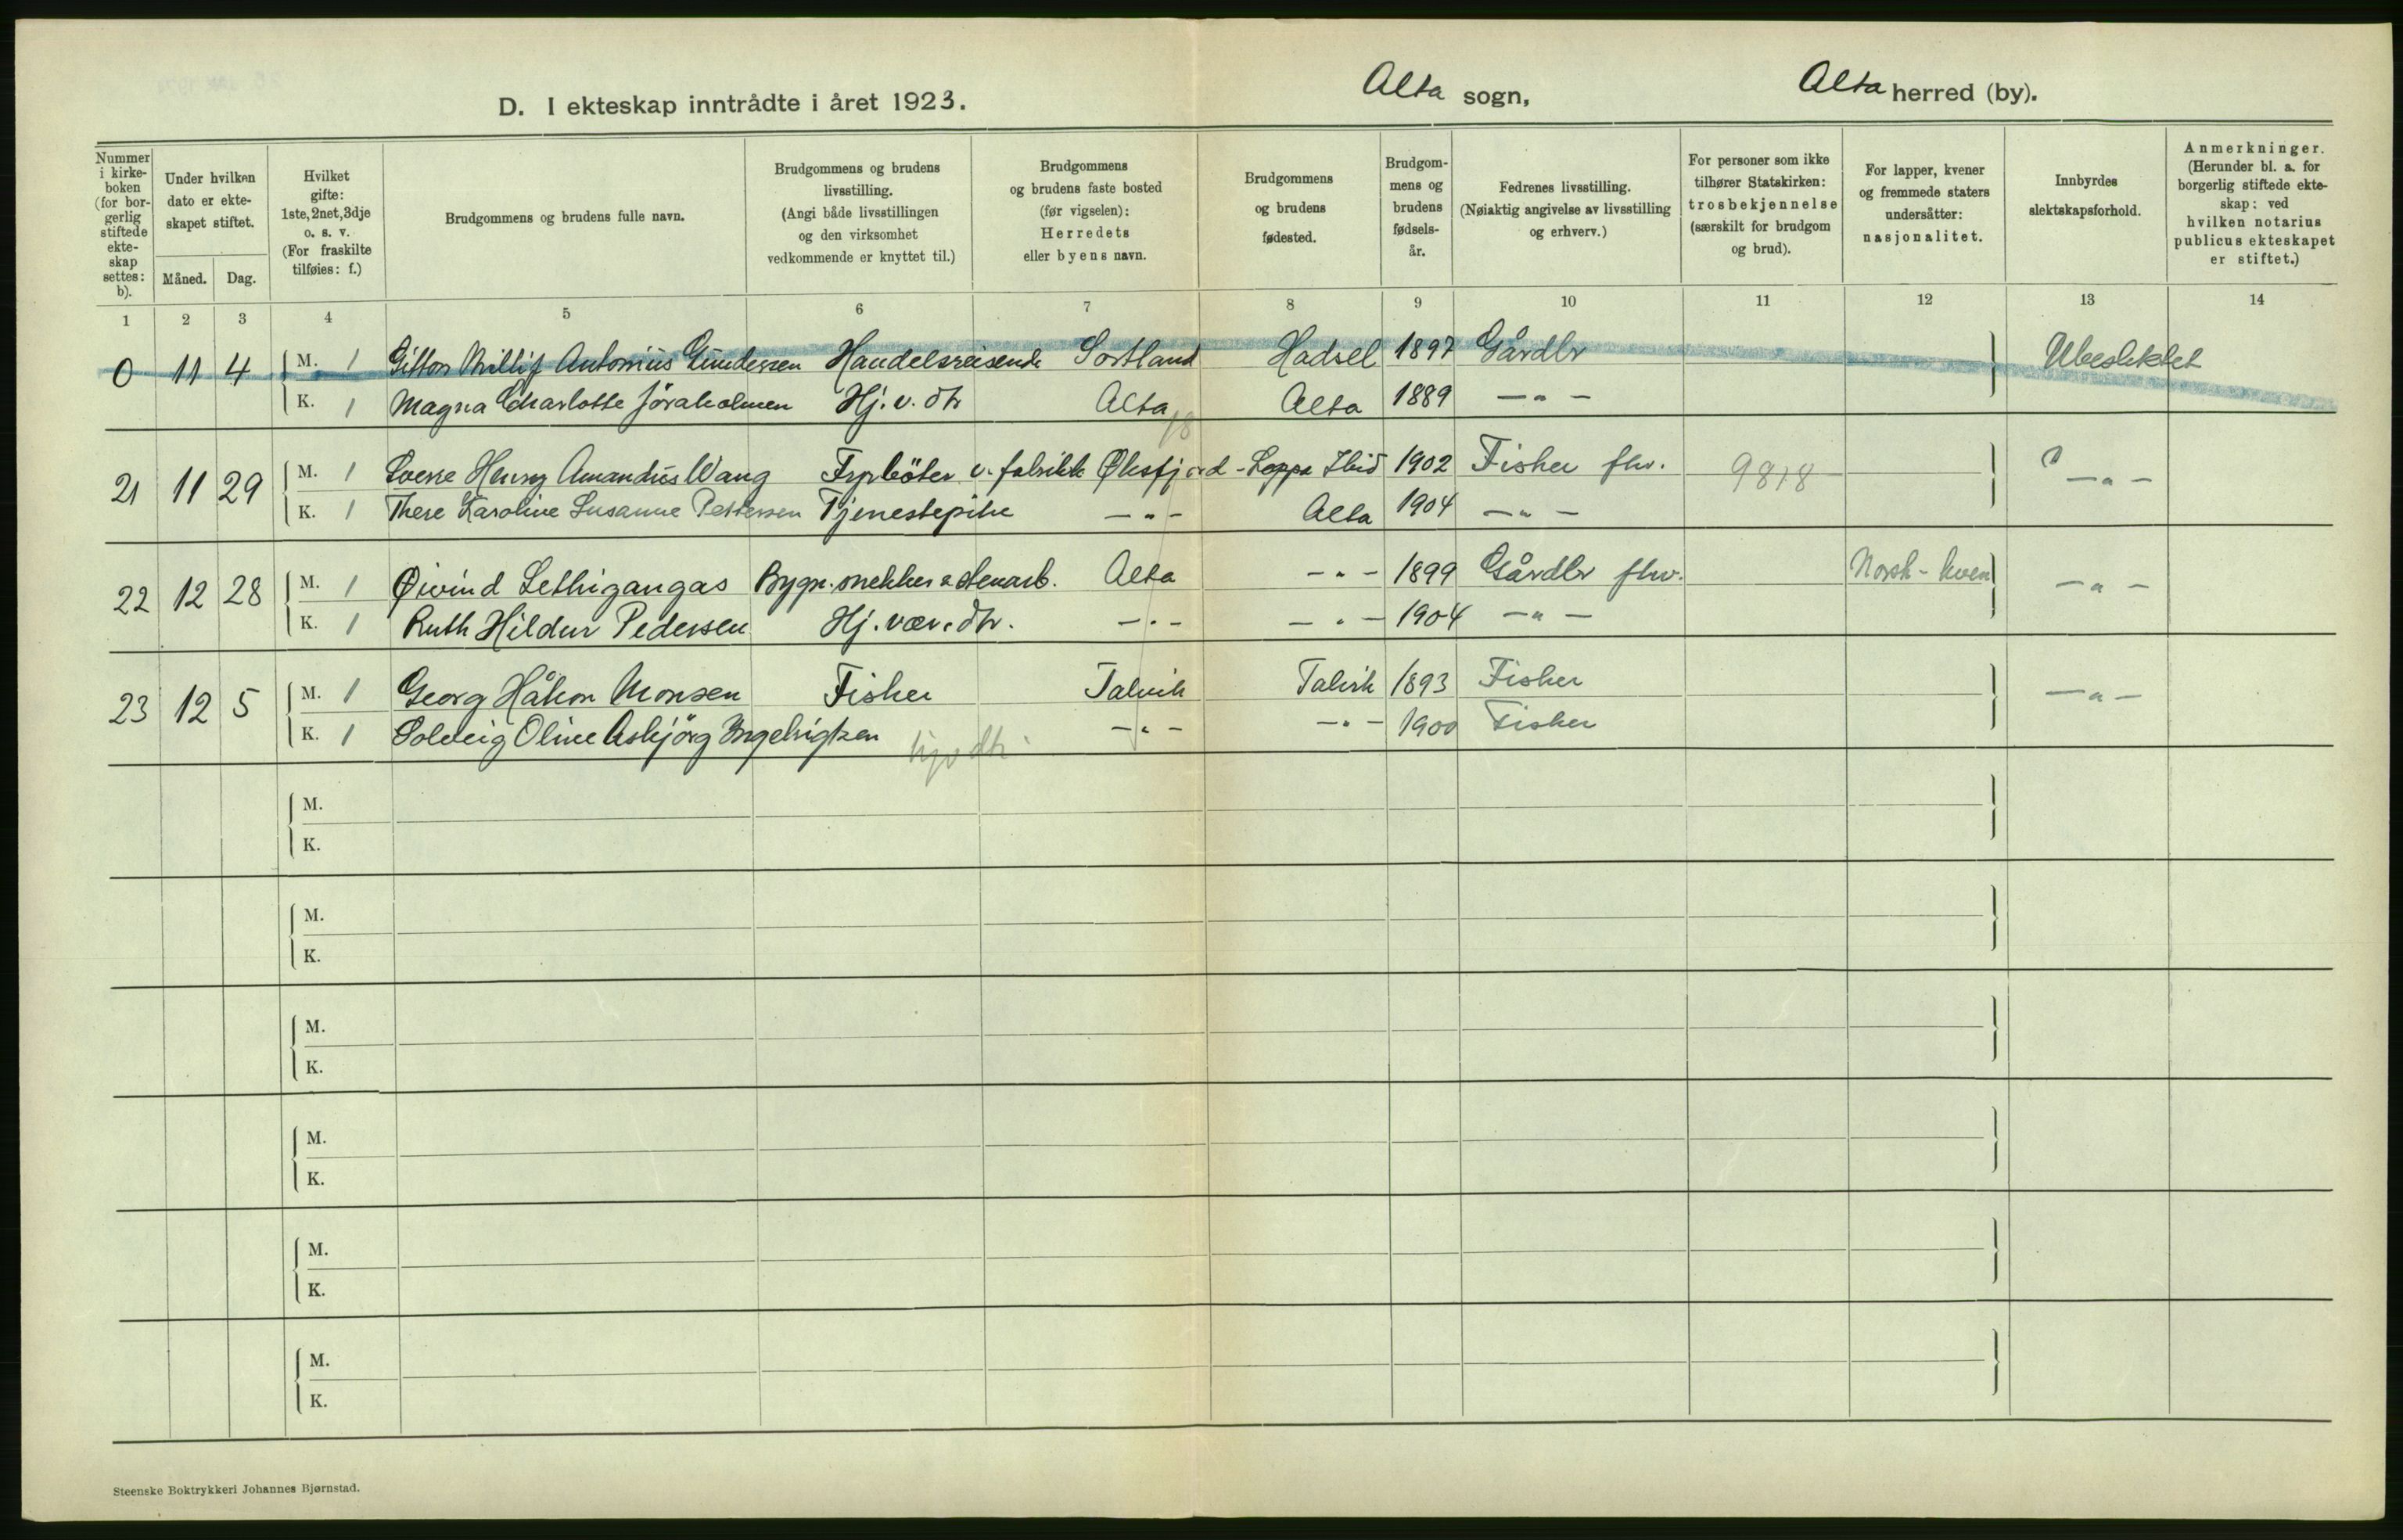 D. I ekteskap inntrådte i året 1923. Alta sogn, Alta herred (by).
Nummer i kirke-boken (for bor-gerlig stiftede ekte-skap settes: b).
Under hvilken dato er ekte-skapet stiftet.
Måned. Dag.
Hvilket gifte: 1ste, 2net, 3dje o. s. v. (For fraskilte tilføies: f.)
Brudgommens og brudens fulle navn.
Brudgommens og brudens livsstilling. (Angi både livsstillingen og den virksomhet vedkommende er knyttet til.)
Brudgommens og brudens faste bosted (før vigselen): Herredets eller byens navn.
Brudgommens og brudens fødested.
Brudgom-mens og brudens fødsels-år.
Fedrenes livsstilling. (Nøiaktig angivelse av livsstilling og erhverv.)
For personer som ikke tilhører Statskirken: trosbekjennelse (særskilt for brudgom og brud).
For lapper, kvener og fremmede staters undersåtter: nasjonalitet.
Innbyrdes slektskapsforhold.
Anmerkninger. (Herunder bl. a. for borgerlig stiftede ekte-skap: ved hvilken notarius publicus ekteskapet er stiftet.)
1 2 3 4 5 6 7 8 9 10 11 12 13 14
0 11 4 M. 1 Antonius Gundersen Handelsreisende Sortland Hadsel 1897 Gårdbr Ubeslektet
K. 1 Magna Charlotte Jöraholmen Hj. v. dtr Alta Alta 1889 — " —
21 11 29 M. 1 Sverre Henry Amandus Wang Fyrböter v. fabrikk Øksfjord - Loppa Ibid 1902 Fisker fhv. 9818 — " —
K. 1 There Karoline Susanne Pettersen Tjenestepike — " — Alta 1904 — " —
22 12 28 M. 1 Øivind Lethigangas Bygn. snekker & stenarb. Alta — " — 1899 Gårdbr fhv. Norsk-kven — " —
K. 1 Ruth Hildur Pedersen Hj. vær. dtr. — " — — " — 1904 — " —
23 12 5 M. 1 Georg Håkon Monsen Fisker Talvik Talvik 1893 Fisker — " —
K. 1 Solveig Oline Asbjörg Ingebrigtsen hjv dtr — " — — " — 1900 Fisker
M.
K.
M.
K.
M.
K.
M.
K.
M.
K.
M.
K.
Steenske Boktrykkeri Johannes Bjørnstad.